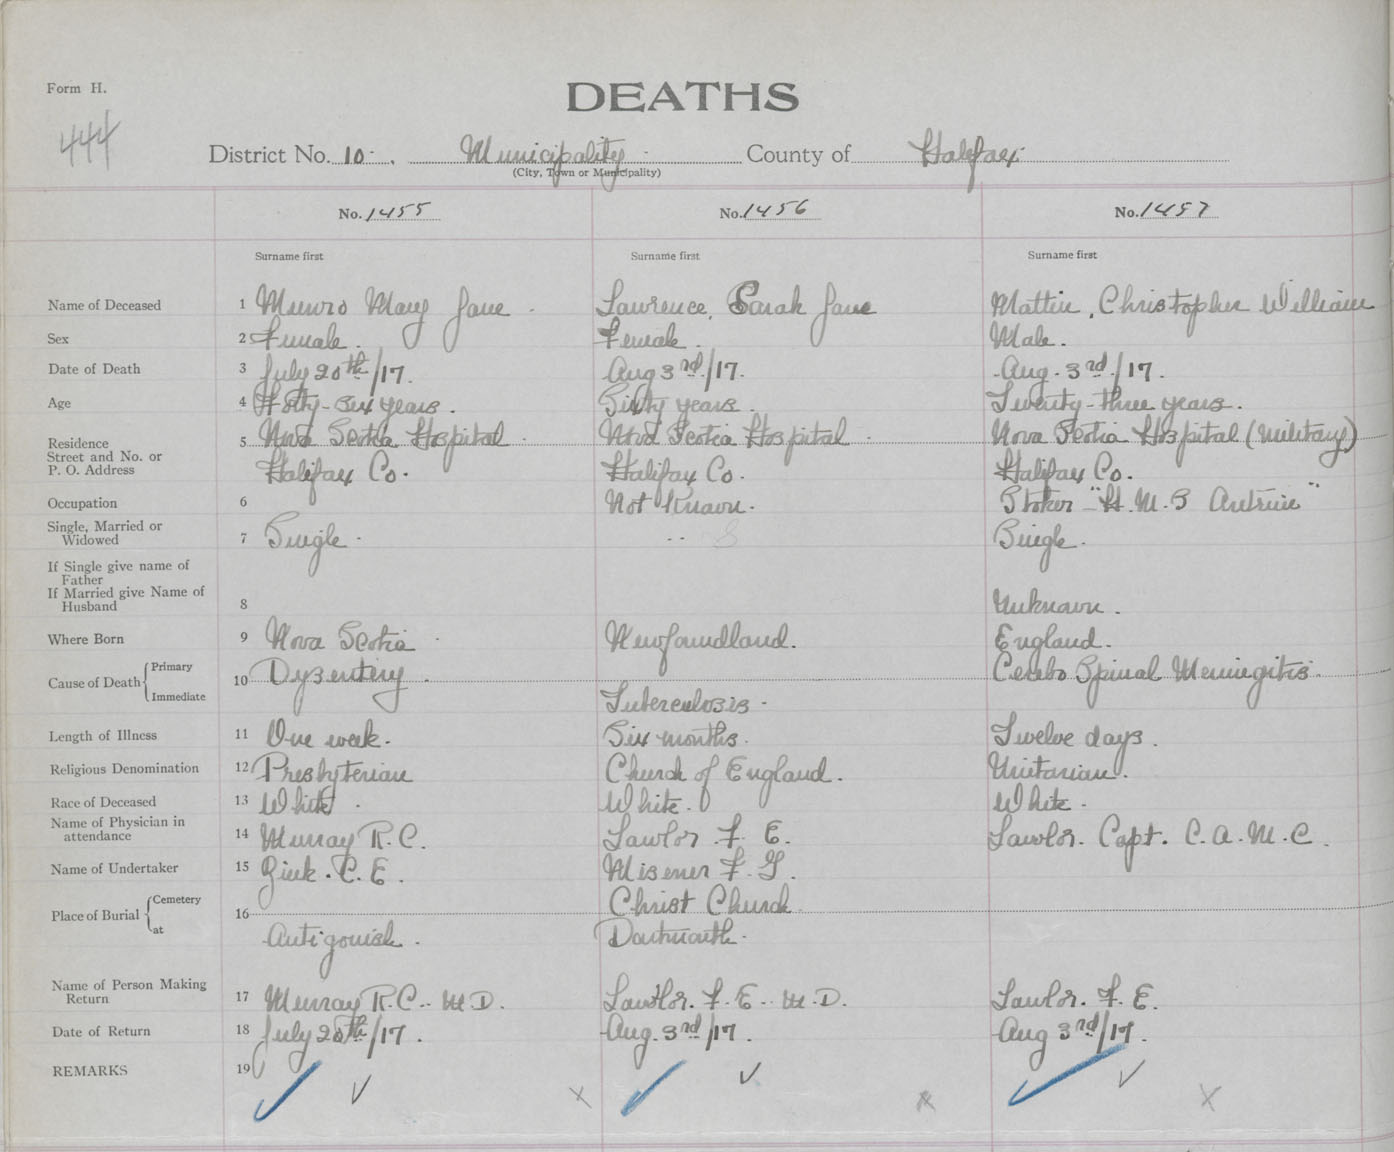 Form H.
DEATHS
444
District No. 10 . Municipality County of Halifax
(City, Town or Municipality)
No. 1455 No. 1456 No. 1457
Surname first Surname first Surname first
Name of Deceased 1 Munro Mary Jane Lawrence, Sarah Jane Mattin, Christopher William
Sex 2 Female. Female. Male.
Date of Death 3 July 20th/17. Aug 3rd/17. Aug. 3rd/17.
Age 4 Forty-six years. Sixty years. Twenty-three years.
Residence 5 Nova Scotia Hospital Nova Scotia Hospital Nova Scotia Hospital (Military)
Street and No. or
P. O. Address Halifax Co. Halifax Co. Halifax Co.
Occupation 6 Not Known. Stoker "H.M.S Antrim"
Single, Married or
Widowed 7 Single - - - S Single.
If Single give name of
Father
If Married give Name of
Husband 8 Unknown.
Where Born 9 Nova Scotia Newfoundland. England.
Cause of Death Primary 10 Dysentery. Cerebo Spinal Meningitis.
Immediate Tuberculosis.
Length of Illness 11 One week. Six months. Twelve days.
Religious Denomination 12 Presbyterian Church of England. Unitarian.
Race of Deceased 13 White. White. White.
Name of Physician in
attendance 14 Murray R.C. Lawlor F. E. Lawlor. Capt. C.A.M.C.
Name of Undertaker 15 Zink. C.E. Misener F. G.
Place of Burial Cemetery 16 Christ Church
at Antigonish. Dartmouth.
Name of Person Making
Return 17 Murray R.C.. M.D. Lawlor. F. E.. M.D. Lawlor. F. E.
Date of Return 18 July 20th/17. Aug. 3rd/17. Aug 3rd/17.
REMARKS 19